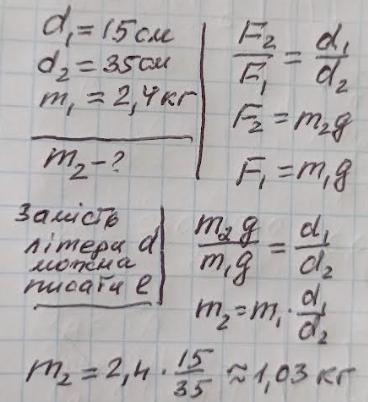 d₁ = 15 см
d₂ = 35 см
m₁ = 2,4 кг
m₂ - ?
F₂/F₁ = d₁/d₂
F₂ = m₂g
F₁ = m₁g
Замість
літери d
можна
писати l
m₂g/m₁g = d₁/d₂
m₂ = m₁ · d₁/d₂
m₂ = 2,4 · 15/35 ≈ 1,03 кг